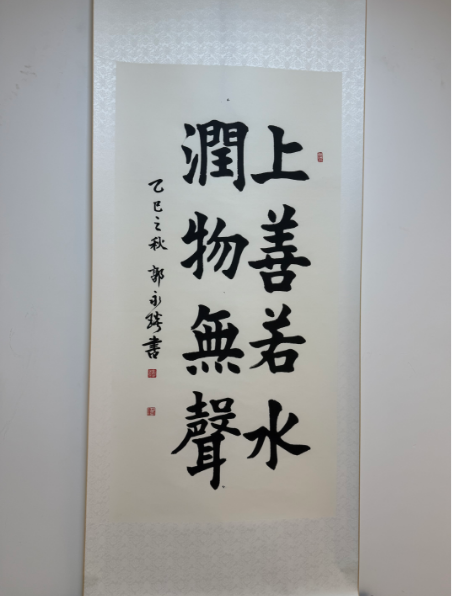 上善若水
潤物無聲
乙巳之秋 郭永 書